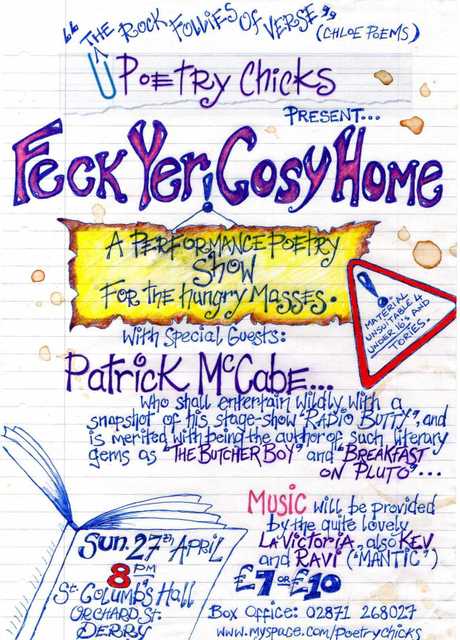 "THE ROCK FOLLIES OF VERSE" (CHLOE POEMS)
POETRY CHICKS
PRESENT...
FECK YER COSY HOME!
A PERFORMANCE POETRY
SHOW
FOR THE HUNGRY MASSES.
! MATERIAL
UNSUITABLE 4
UNDER 16s AND
TORIES.
With Special Guests:
PATRICK McCABE...
who shall entertain wildly with a
snapshot of his stage-show "RADIO BUTTY", and
is merited with being the author of such literary
gems as "THE BUTCHER BOY" and "BREAKFAST
ON PLUTO"...
MUSIC will be provided
by the quite lovely
LA VICTORIA, also KEV
and RAVI ("MANTIC")
£7 OR £10
Sun. 27th APRIL
8PM
St. Columb's Hall
ORCHARD ST.
DERRY
Box Office: 02871 268027
www.myspace.com/poetrychicks